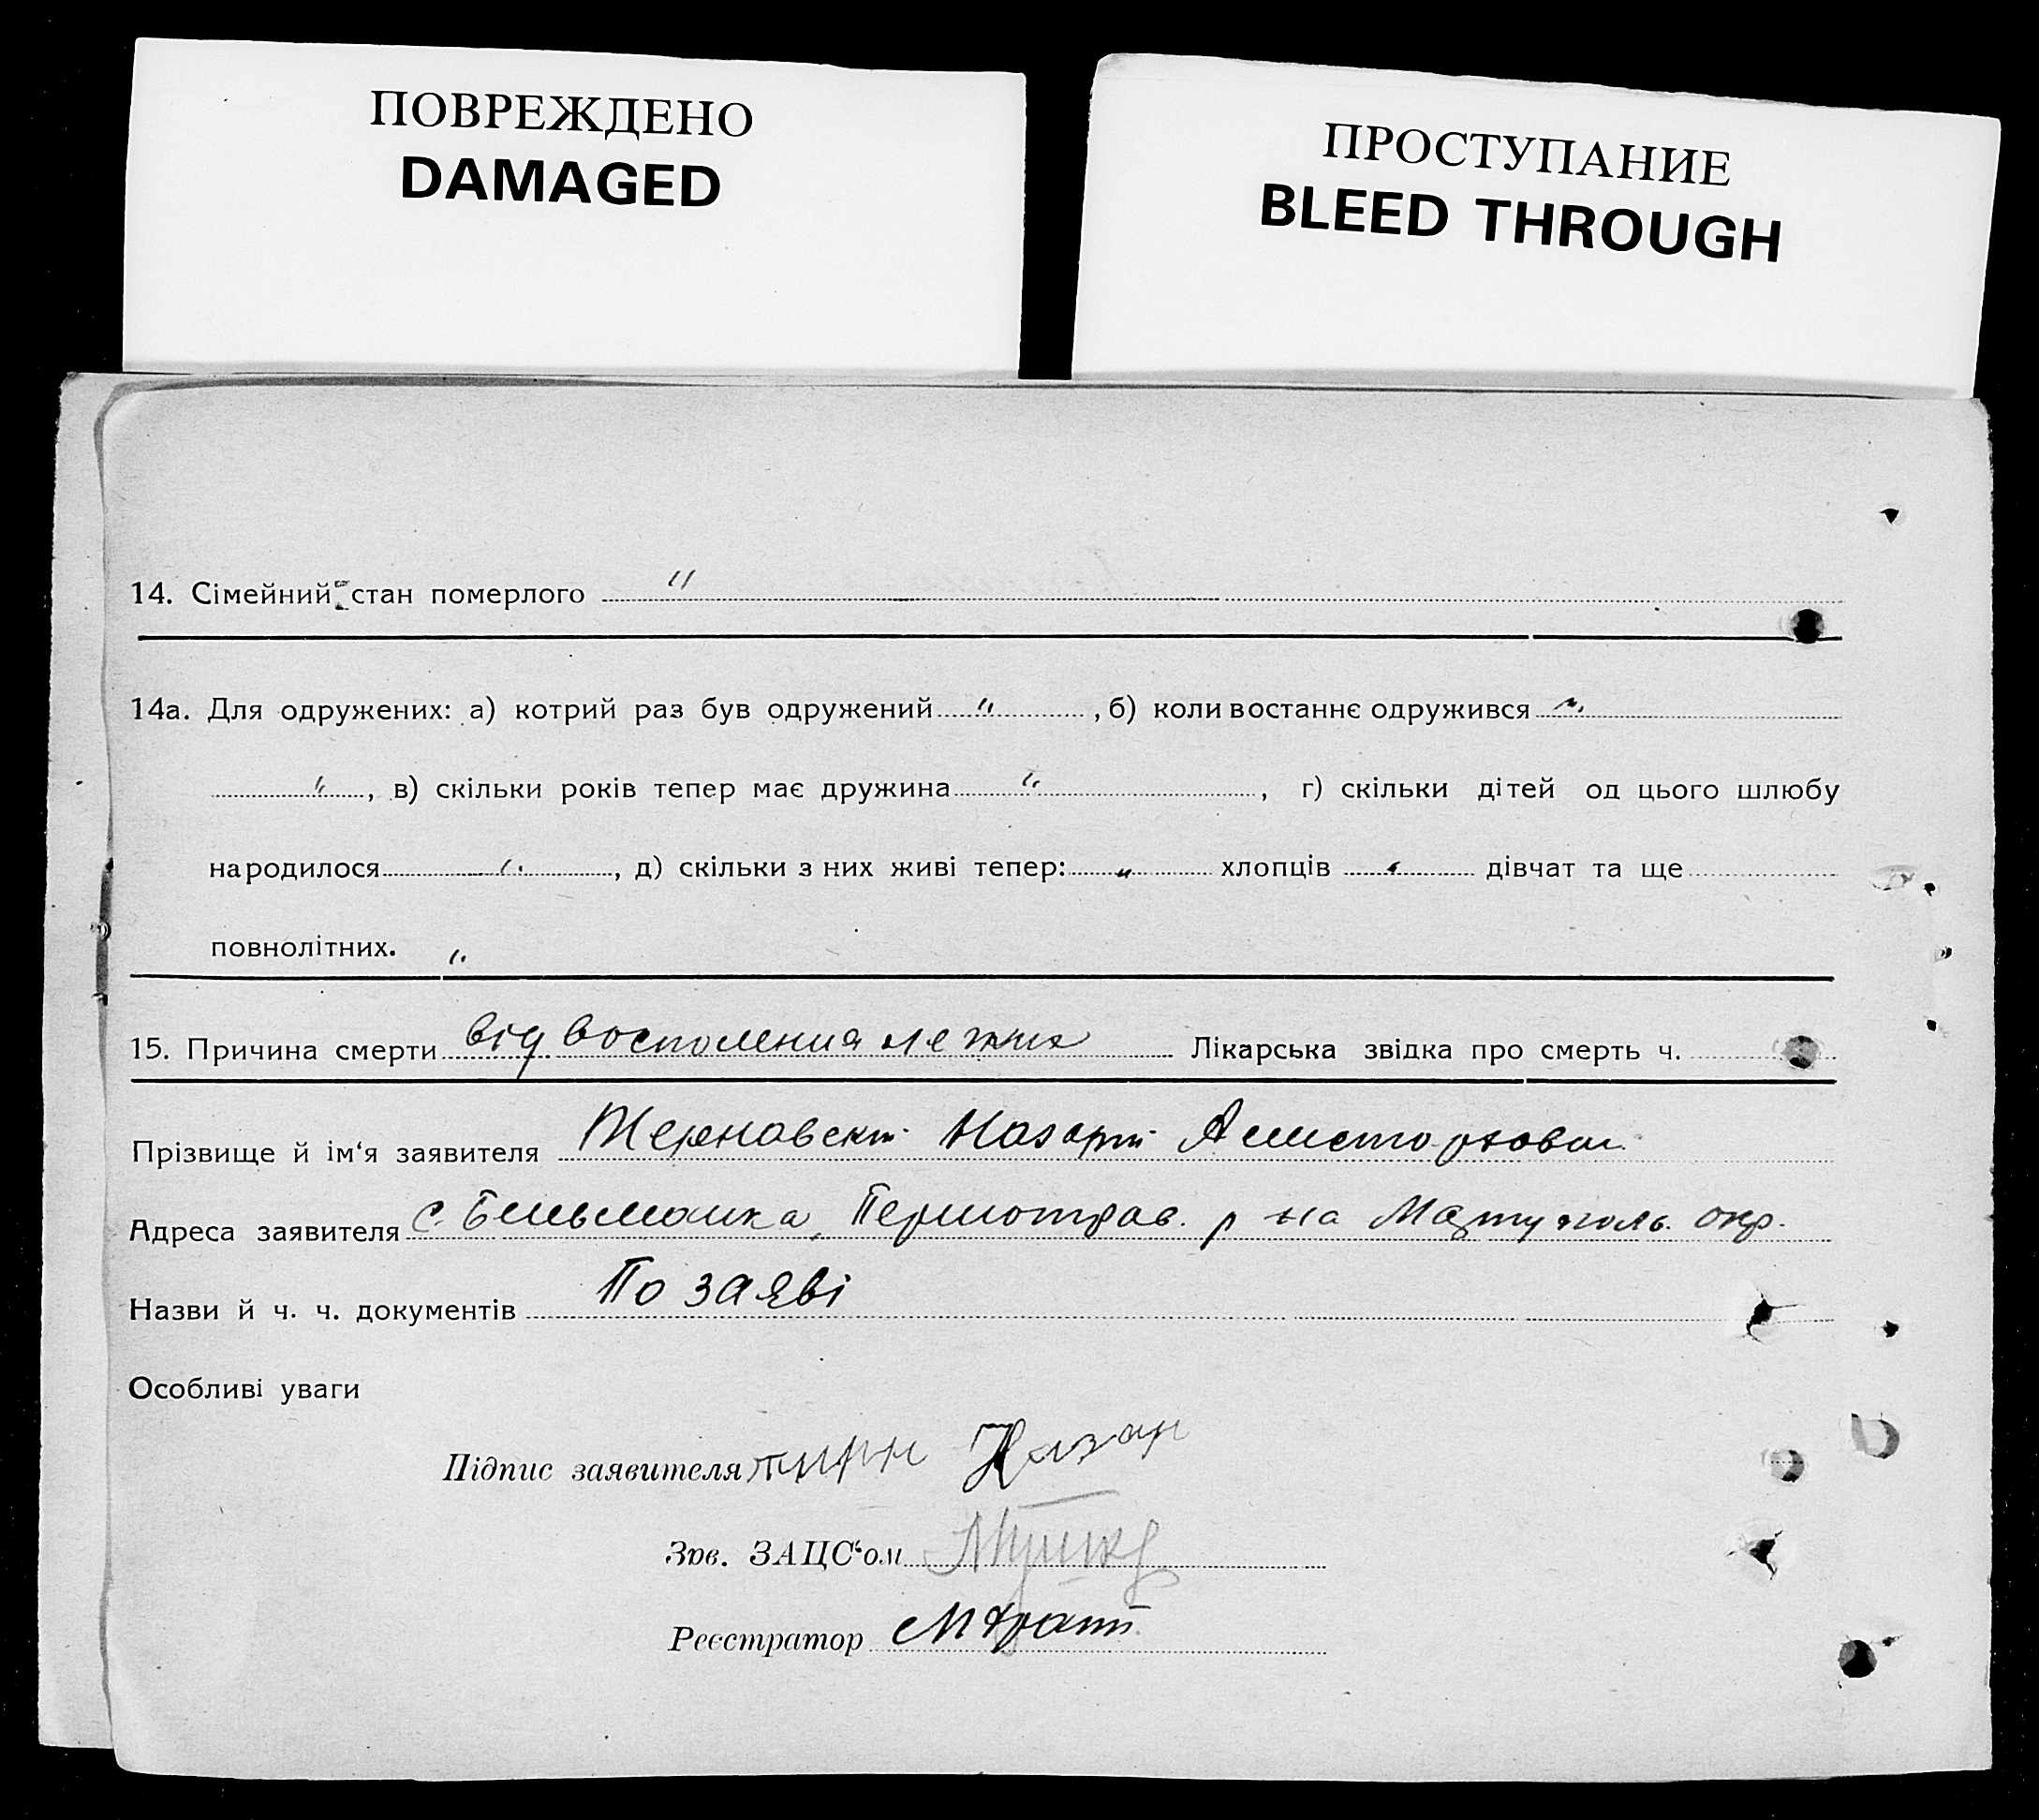 ПОВРЕЖДЕНО
DAMAGED
ПРОСТУПАНИЕ
BLEED THROUGH
14. Сімейний стан померлого "
14а. Для одружених: а) котрий раз був одружений " , б) коли востаннє одружився "
" , в) скільки років тепер має дружина " , г) скільки дітей од цього шлюбу
народилося " , д) скільки з них живі тепер: " хлопців " дівчат та ще
повнолітних. "
15. Причина смерти від восполения легких Лікарська звідка про смерть ч.
Прізвище й ім'я заявителя Терновски Назарт
Адреса заявителя с. Бельманка, Першотрав. р на Мариуполь. окр.
Назви й ч. ч. документів По заяві
Особливі уваги
Підпис заявителя Назар
Зав. ЗАЦС'ом
Реєстратор